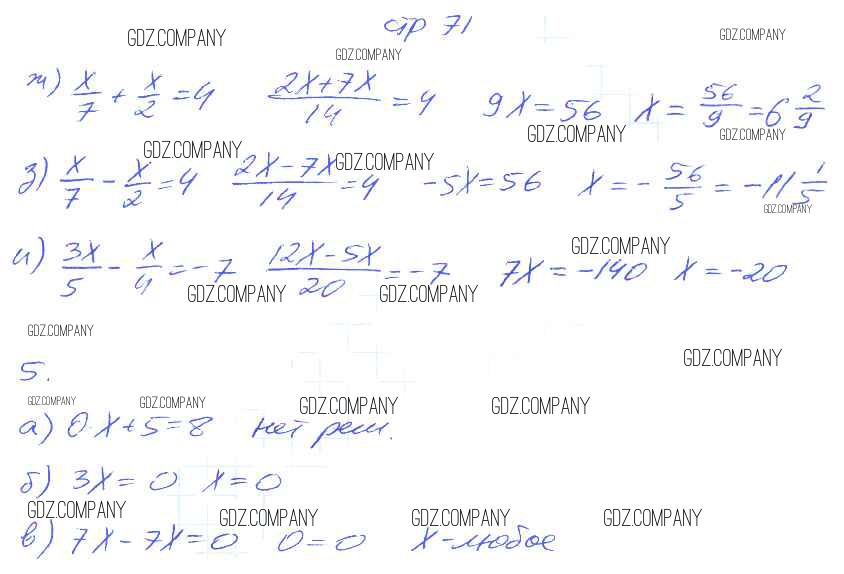 стр 71
GDZ.COMPANY GDZ.COMPANY GDZ.COMPANY
ж) x/7 + x/2 = 4 (2x+7x)/14 = 4 9x = 56 x = 56/9 = 6 2/9
GDZ.COMPANY GDZ.COMPANY GDZ.COMPANY GDZ.COMPANY
з) x/7 - x/2 = 4 (2x-7x)/14 = 4 -5x = 56 x = - 56/5 = -11 1/5
GDZ.COMPANY
и) 3x/5 - x/4 = -7 (12x-5x)/20 = -7 7x = -140 x = -20
GDZ.COMPANY GDZ.COMPANY GDZ.COMPANY
GDZ.COMPANY GDZ.COMPANY
5.
GDZ.COMPANY GDZ.COMPANY GDZ.COMPANY GDZ.COMPANY
а) 0·x+5=8 нет реш.
б) 3x = 0 x = 0
GDZ.COMPANY GDZ.COMPANY GDZ.COMPANY GDZ.COMPANY
в) 7x - 7x = 0 0 = 0 x - любое